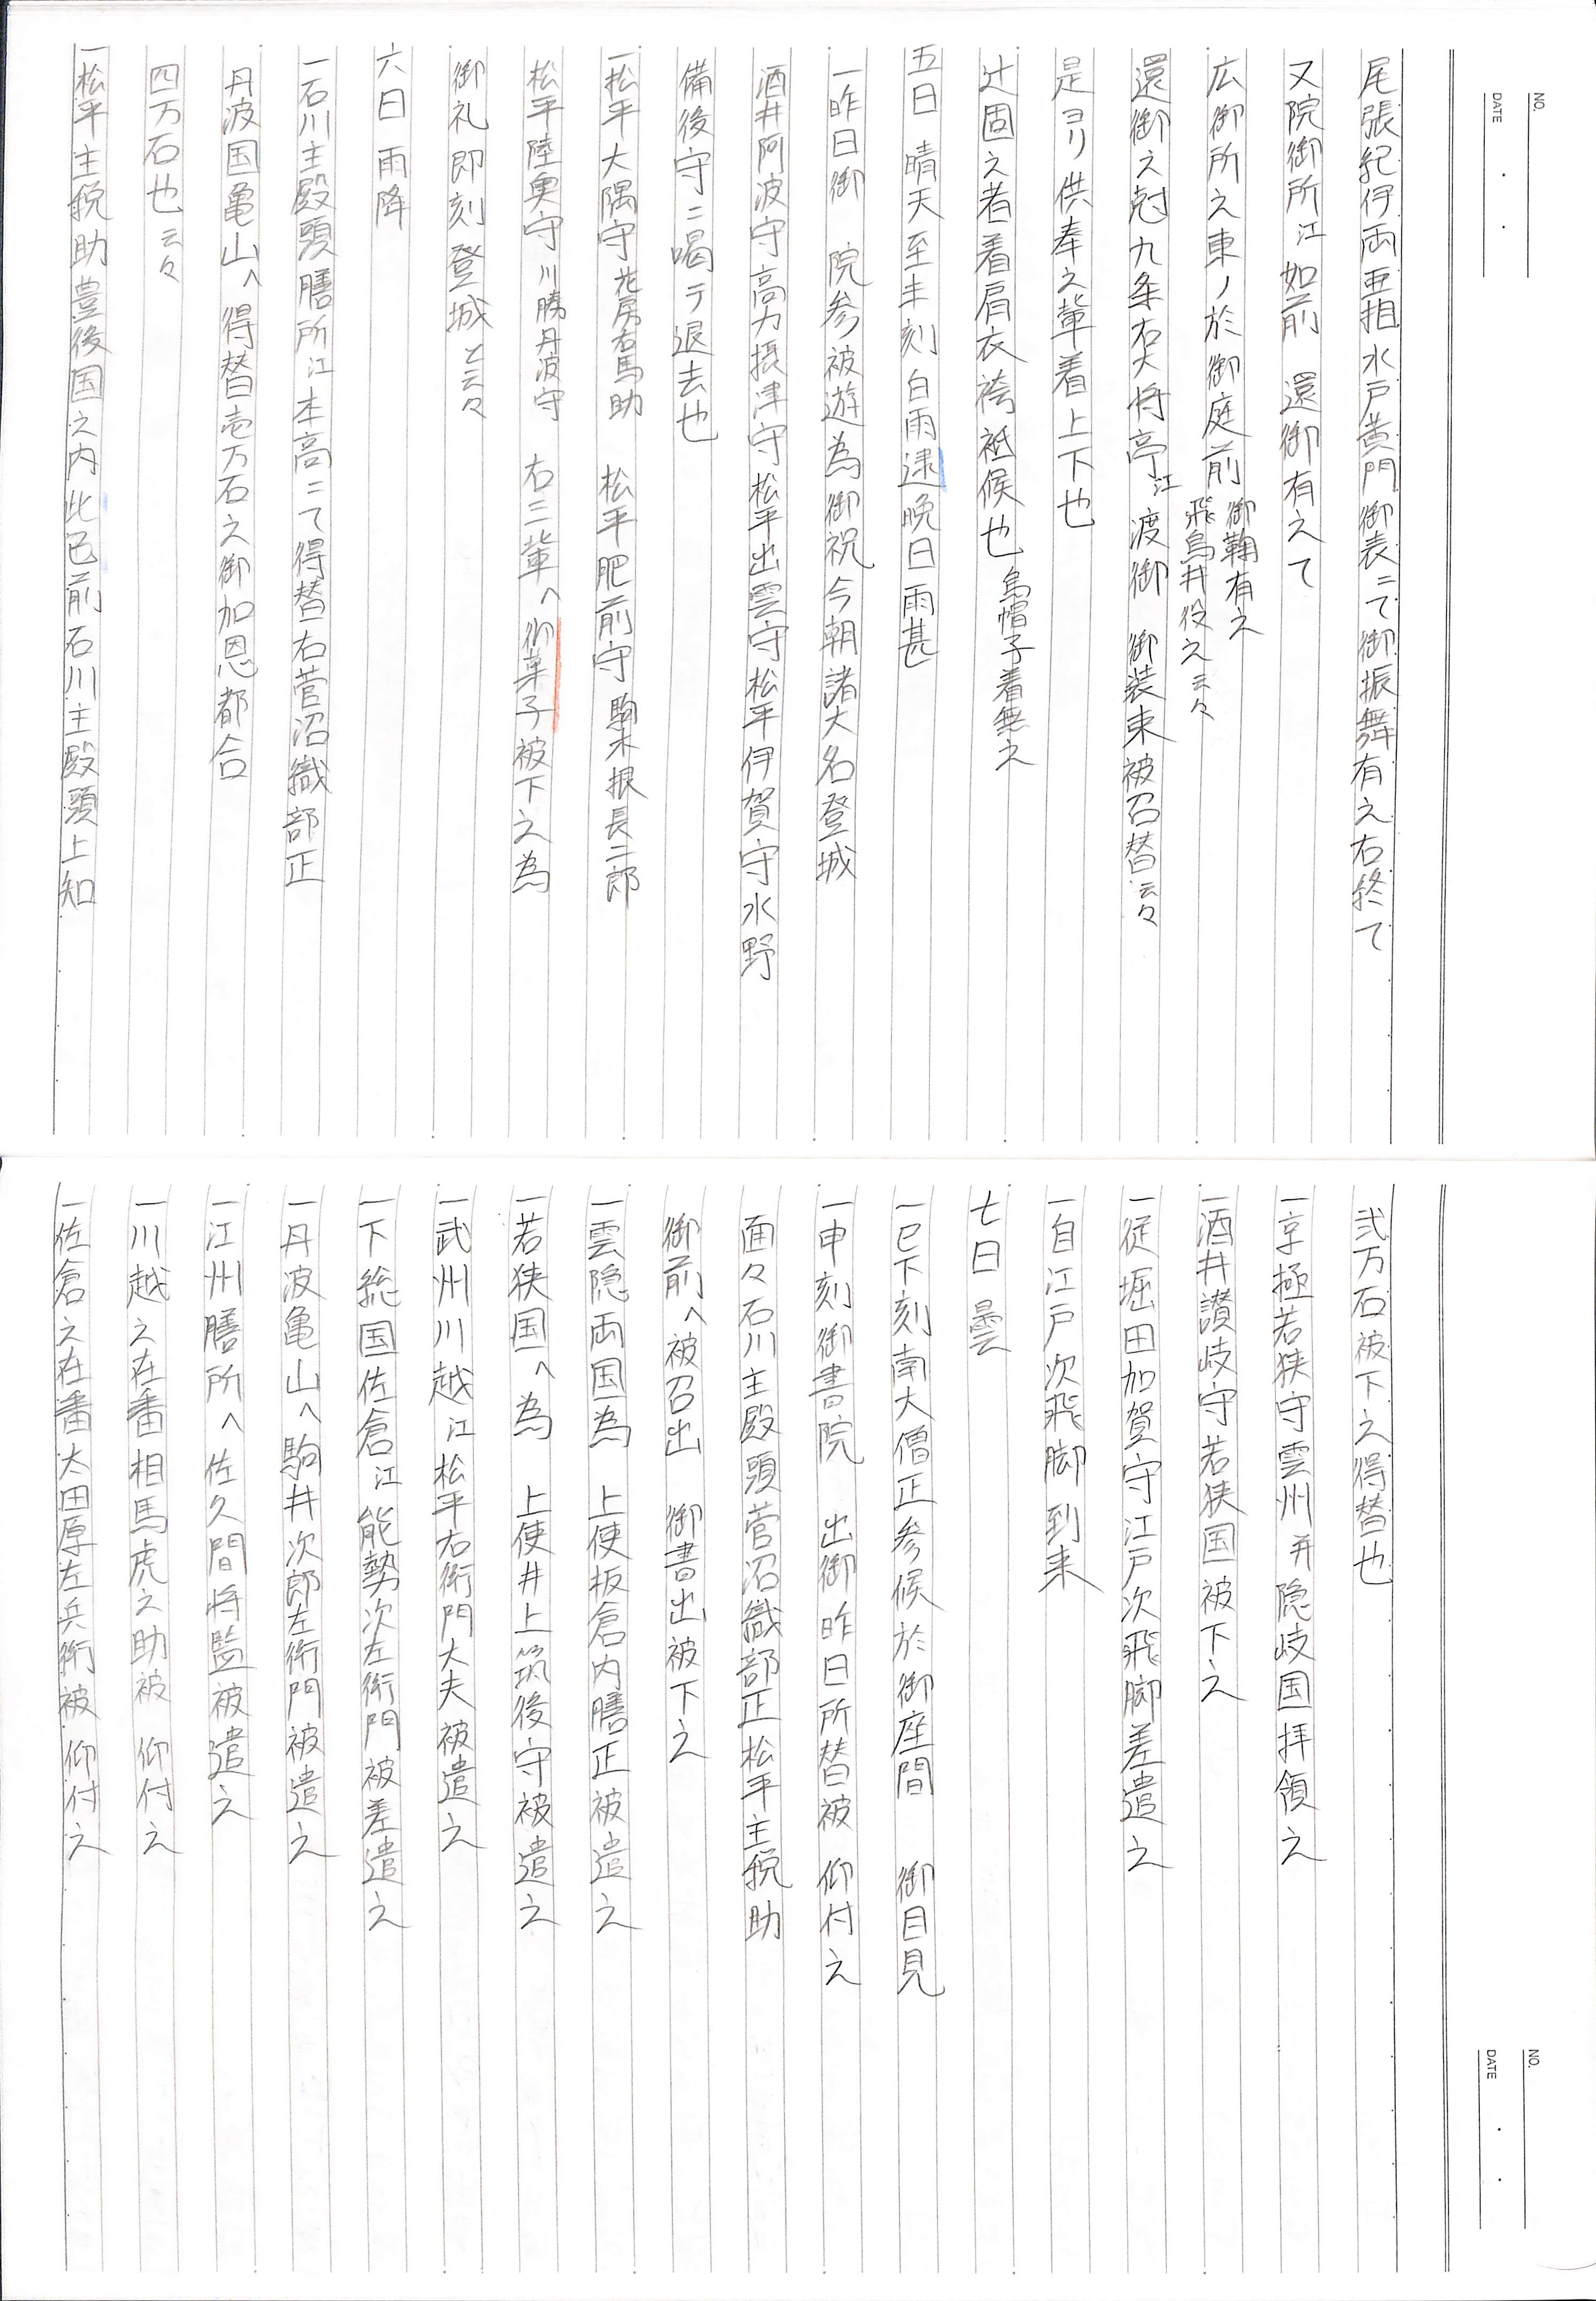 NO.
DATE
尾張紀伊両亜相水戸黄門御表ニて御振舞有之右終て
又院御所江如前 還御有之て
広御所之東ノ於御庭前 御鞠有之
飛鳥井役之云々
還御之尅九条右大将亭江渡御 御装束被召替云々
是ヨリ供奉之輩着上下也
辻固之者着肩衣袴祗候也 烏帽子着無之
五日 晴天至未刻白雨逮晩日雨甚
一昨日御 院参被遊為御祝今朝諸大名登城
酒井阿波守高力摂津守松平出雲守松平伊賀守水野
備後守ニ喝テ退去也
一松平大隅守 花房右馬助 松平肥前守 駒木根長二郎
松平陸奥守 川勝丹波守 右三輩へ御菓子被下之為
御礼即刻登城と云々
六日 雨降
一石川主殿頭膳所江本高ニて得替右菅沼織部正
丹波国亀山へ得替壱万石之御加恩都合
四万石也云々
一松平主税助豊後国之内此已前石川主殿頭上知
NO.
DATE
弐万石被下之得替也
一京極若狭守雲州并隠岐国拝領之
一酒井讃岐守若狭国被下之
一従堀田加賀守江戸次飛脚差遣之
一自江戸次飛脚到来
七日 曇
一巳下刻南大僧正参候於御座間 御目見
一申刻御書院 出御昨日所替被 仰付之
面々石川主殿頭菅沼織部正松平主税助
御前へ被召出 御書出被下之
一雲隠両国為 上使板倉内膳正被遣之
一若狭国へ為 上使井上筑後守被遣之
一武州川越江松平右衛門大夫被遣之
一下総国佐倉江能勢次左衛門被差遣之
一丹波亀山へ駒井次郎左衛門被遣之
一江州膳所へ佐久間将監被遣之
一川越之在番相馬虎之助被 仰付之
一佐倉之在番太田原左兵衛被 仰付之